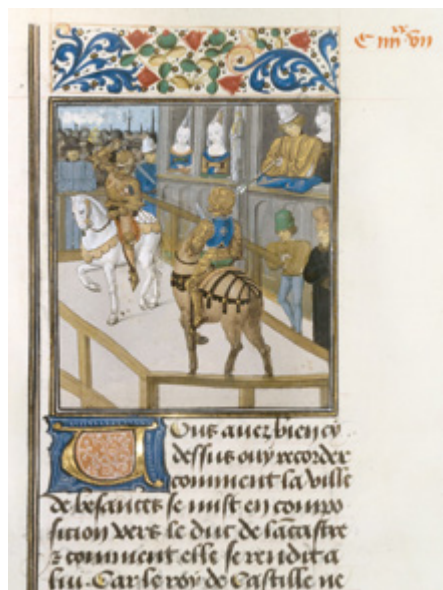 C iiii xx vii
Vous auez bien cy
dessus ouy recorder
comment la ville
de besances se mist en compo
sicion vers le duc de lancastre
z comment elle se rendit a
lui. Car le roy de Castille ne